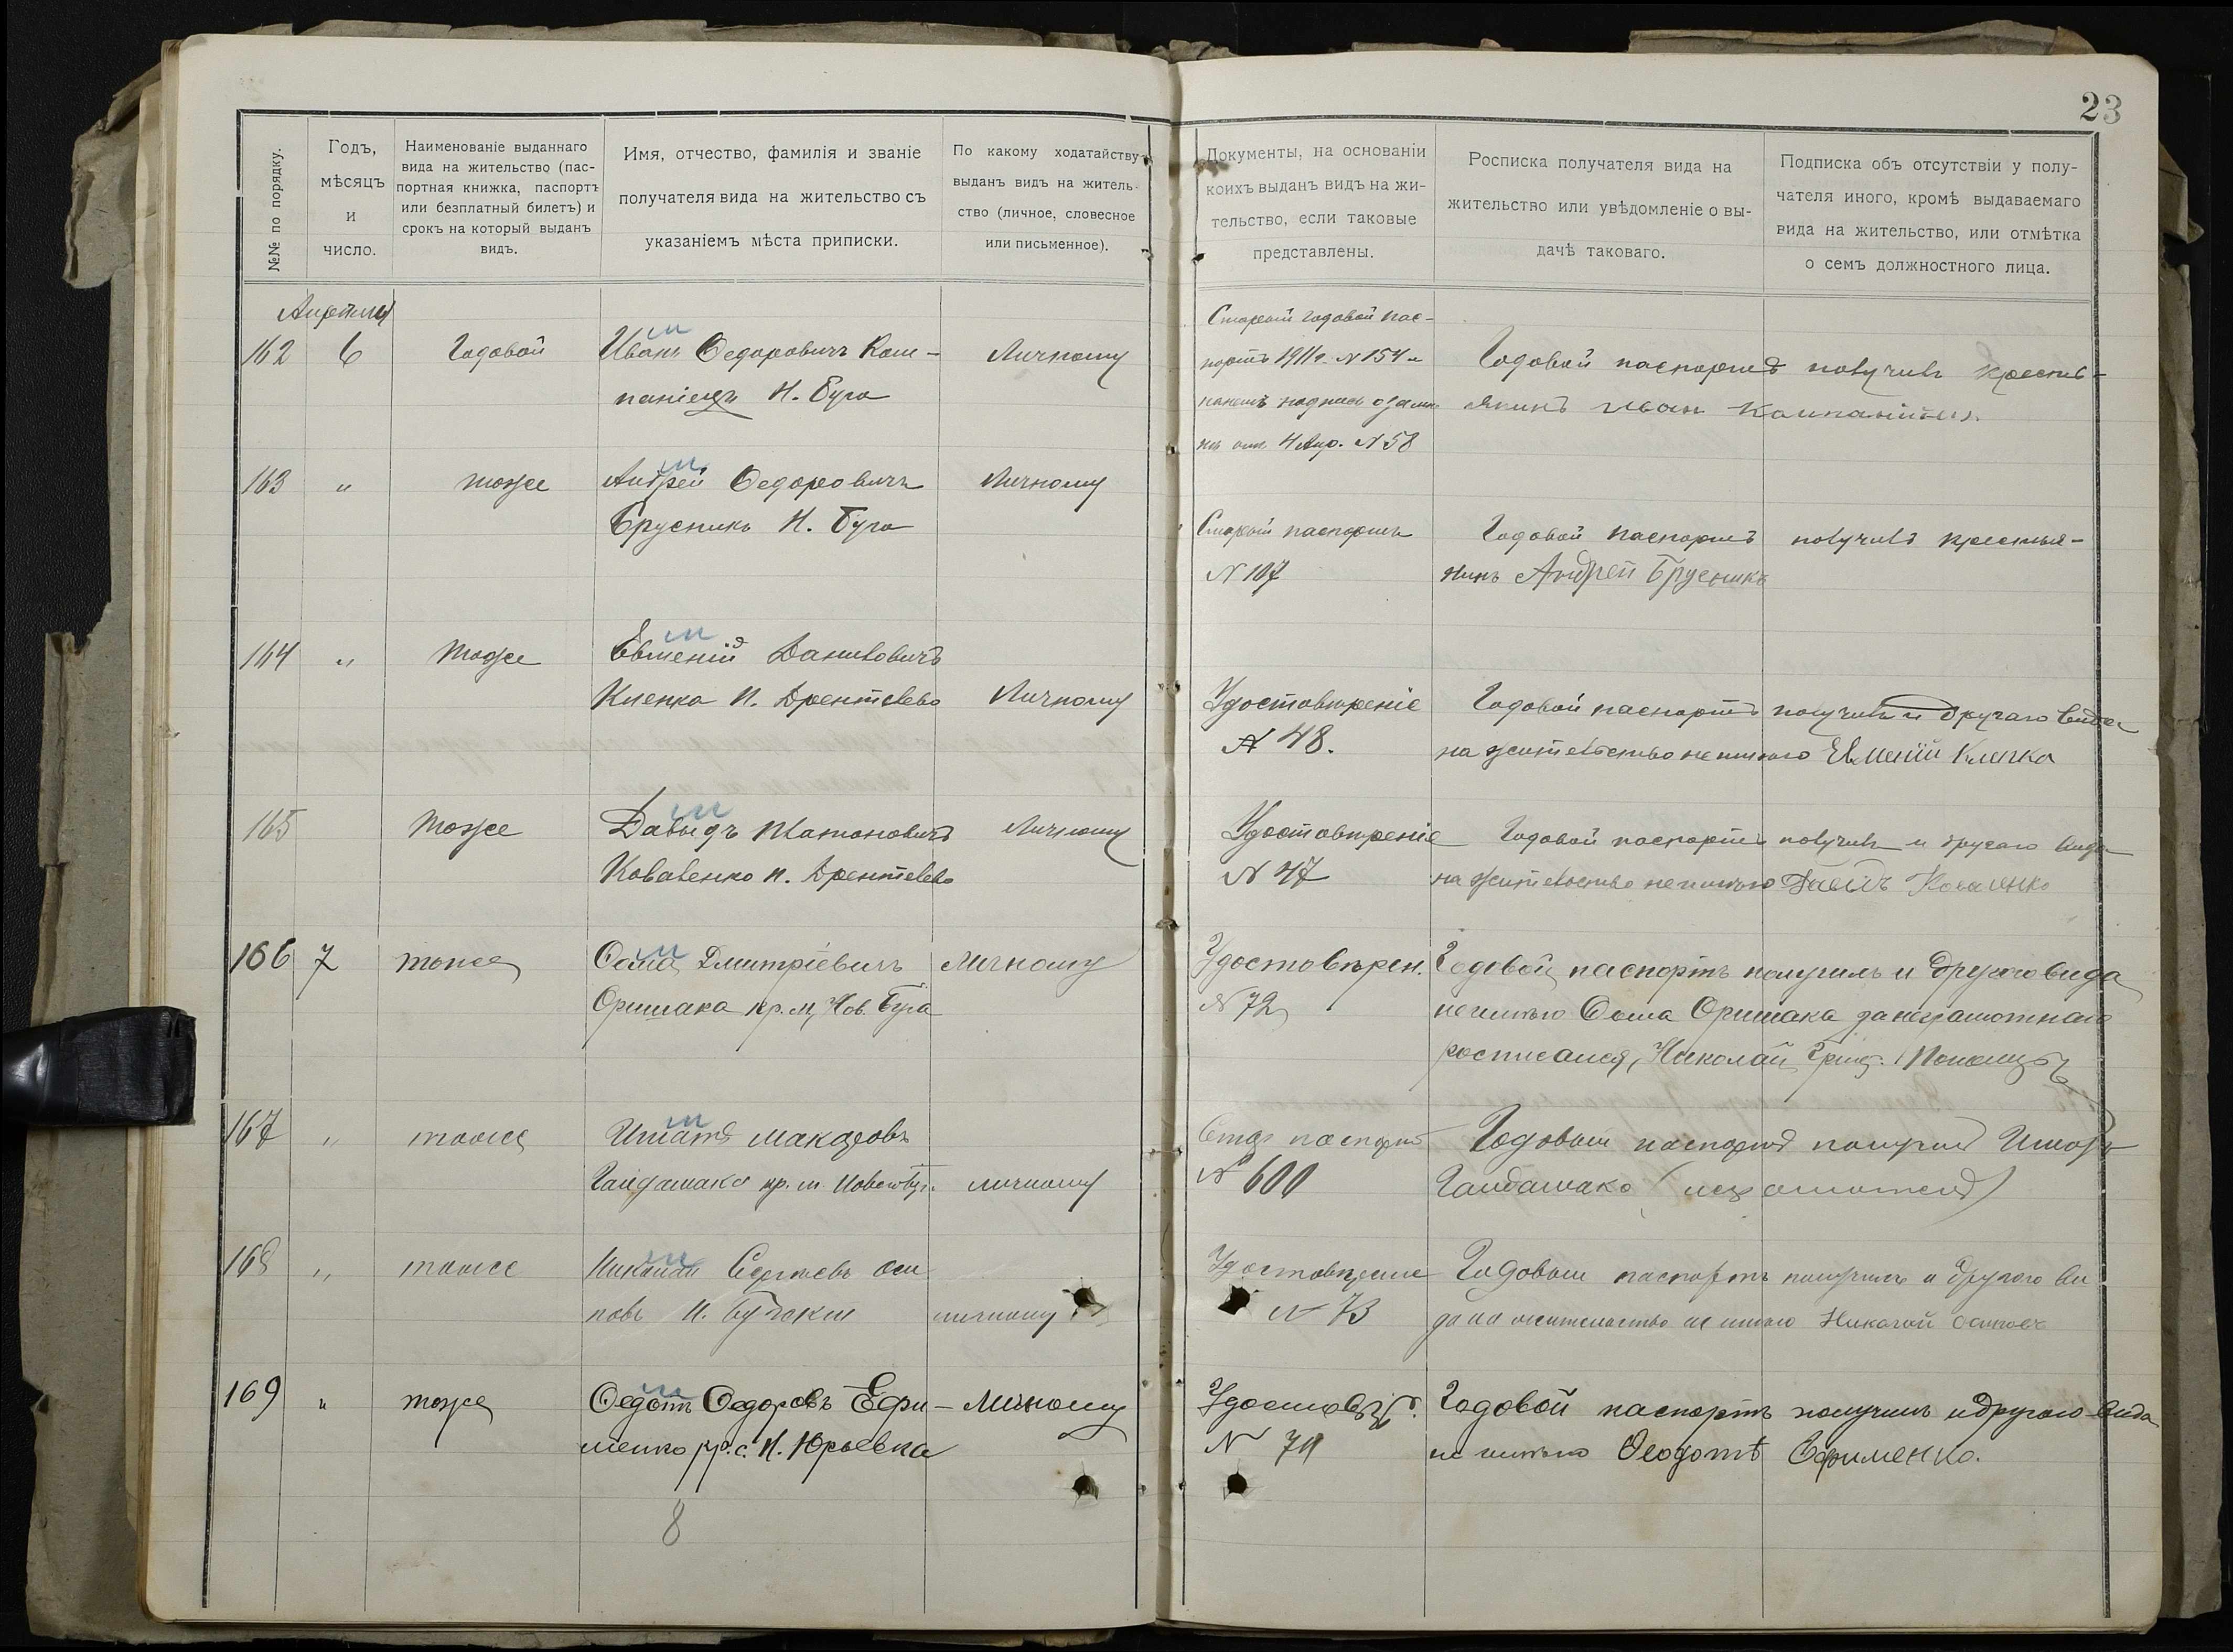 23
№№ по порядку.
Годъ,
мѣсяцъ
и
число.
Наименованіе выданнаго
вида на жительство (пас-
портная книжка, паспортъ
или безплатный билетъ) и
срокъ на который выданъ
видъ.
Имя, отчество, фамилія и званіе
получателя вида на жительство съ
указаніемъ мѣста приписки.
По какому ходатайству
выданъ видъ на житель-
ство (личное, словесное
или письменное).
Документы, на основаніи
коихъ выданъ видъ на жи-
тельство, если таковые
представлены.
Росписка получателя вида на
жительство или увѣдомленіе о вы-
дачѣ таковаго.
Подписка объ отсутствіи у полу-
чателя иного, кромѣ выдаваемаго
вида на жительство, или отмѣтка
о семъ должностного лица.
Апрѣля
162 6 Годовой Иванъ Федоровичъ Ком-
паніецъ Н. Буга
Личному
Старый годовой пас-
портъ 1911 г. № 154 и
4 Апр. № 58
Годовой паспортъ получилъ крестья-
янинъ Иван Компаніец
163 " тоже Андрей Федоровичъ
Брусникъ Н. Буга
Личному
Старый паспортъ
№ 107
Годовой паспортъ получилъ крестья-
нинъ Андрей Брусникъ
164 " тоже Евменій Даниловичъ
Кленка Н. Дрентелево Личному
Удостовѣреніе
№ 48.
Годовой паспортъ получилъ и другаго вида
на жительство не имѣю Евменій Кленка
165 тоже Давыдъ Платоновичъ
Коваленко н. Дрентелево
Личному
Удостовѣреніе
№ 47
Годовой паспортъ получилъ и другаго вида
на жительство не имѣю Коваленко
166 7 тоже Фома Дмитріевичъ
Оришака кр. м. Нов. Буга
Личному
Удостовѣрен.
№ 72
Годовой паспортъ получилъ и другого вида
не имѣю Фома Оришака за неграмотнаго
росписался Николай
167 " тоже Игнатъ Макаровъ
Гайдамака кр. м. личному
Стар паспортъ
№ 600
Годовой паспортъ получилъ Игнатъ
Гайдамака (неграмотенъ)
168 " тоже Николай Сергѣевъ Оси
повъ Н. Бугскій личному
Удостовѣреніе
№ 73
Годовой паспортъ получилъ и другого ви
да на жительство не имѣю Николай Осиповъ
169 " тоже Федотъ Федоровъ Ефи-
менко кр. с. Н. Юрьевка
Личному
Удостовѣр.
№
Годовой паспортъ получилъ и другого вида
не имѣю Феодотъ Ефименко.
8